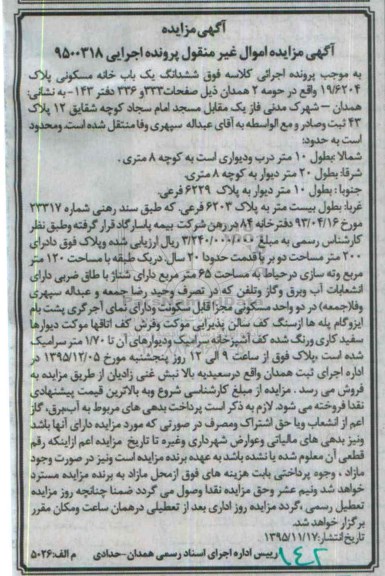 آگهی مزایده
آگهی مزایده اموال غیر منقول پرونده اجرایی ۹۵۰۰۳۱۸
به موجب پرونده اجرائی کلاسه فوق ششدانگ یک باب خانه مسکونی پلاک
۱۹/۶۲۰۴ واقع در حومه ۲ همدان ذیل صفحات ۳۳۳و ۳۳۶ دفتر ۱۴۳- به نشانی:
همدان – شهرک مدنی فاز یک مقابل مسجد امام سجاد کوچه شقایق ۱۲ پلاک
۴۳ ثبت وصادر و مع الواسطه به آقای عبداله سپهری وفا منتقل شده است. ومحدود
است به حدود:
شمالا :بطول ۱۰ متر درب ودیواری است به کوچه ۸ متری.
شرقا: بطول ۲۰ متر دیوار به کوچه ۸ متری.
جنوبا: بطول ۱۰ متر دیوار به پلاک ۶۲۲۹ فرعی.
غربا: بطول بیست متر به پلاک ۶۲۰۳ فرعی. که طبق سند رهنی شماره ۲۳۳۱۷
مورخ ۹۳/۰۴/۱۶ دفترخانه ۸۴ در رهن شرکت بیمه پاسارگاد قرار گرفته وطبق نظر
کارشناس رسمی به مبلغ ۳/۲۴۰/۰۰۰/۰۰۰ ریال ارزیابی شده وپلاک فوق دادرای
۲۰۰ متر مساحت دو بر با قدمت حدودا ۲۰ سال. دریک طبقه با مساحت ۱۲۰ متر
مربع وته سازی درحیاط به مساحت ۶۵ متر مربع دارای شناژ با طاق ضربی دارای
انشعابات آب وبرق وگاز وتلفن که در تصرف وحید رضا جمعه و عبداله سپهری
وفا(جمعه) در دو واحد مسکونی مجزا قابل سکونت ودارای نمای آجرگری پشت بام
ایزوگام پله ها ازسنگ کف سالن پذیرایی موکت وفرش کف اتاقها موکت دیوارها
سفید کاری ورنگ شده کف آشپزخانه سرامیک ودیوارهای آن تا ۱/۷۰ متر سرامیک
شده است ،پلاک فوق از ساعت ۹ الی ۱۲ روز پنجشنبه مورخ ۱۳۹۵/۱۲/۰۵ در
اداره اجرای ثبت همدان واقع درسعیدیه بالا نبش غنی زادیان از طریق مزایده به
فروش می رسد . مزایده از مبلغ کارشناسی شروع وبه بالاترین قیمت پیشنهادی
نقدا فروخته می شود. لازم به ذکر است پرداخت بدهی های مربوط به آب،برق، گاز
اعم از انشعاب ویا حق اشتراک ومصرف در صورتی که مورد مزایده دارای آنها باشد
ونیز بدهی های مالیاتی وعوارض شهرداری وغیره تا تاریخ مزایده اعم ازاینکه رقم
قطعی آن معلوم شده یا نشده باشد به عهده برنده مزایده است ونیز در صورت وجود
مازاد ، وجوه پرداختی بابت هزینه های فوق ازمحل مازاد به برنده مزایده مسترد
خواهد شد ونیم عشر وحق مزایده نقدا وصول می گردد ضمنا چنانچه روز مزایده
تعطیل رسمی ،گردد مزایده روز اداری بعد از تعطیلی درهمان ساعت ومکان مقرر
برگزار خواهد شد.
تاریخ انتشار: ۱۳۹۵/۱۱/۱۷
۱۴۲ رییس اداره اجرای اسناد رسمی همدان-حدادی م الف: ۵۰۲۶